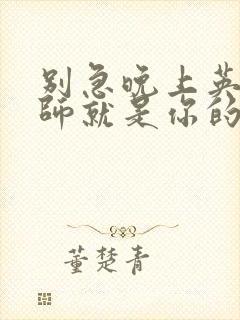 别急晚上英
师就是你的
董楚青